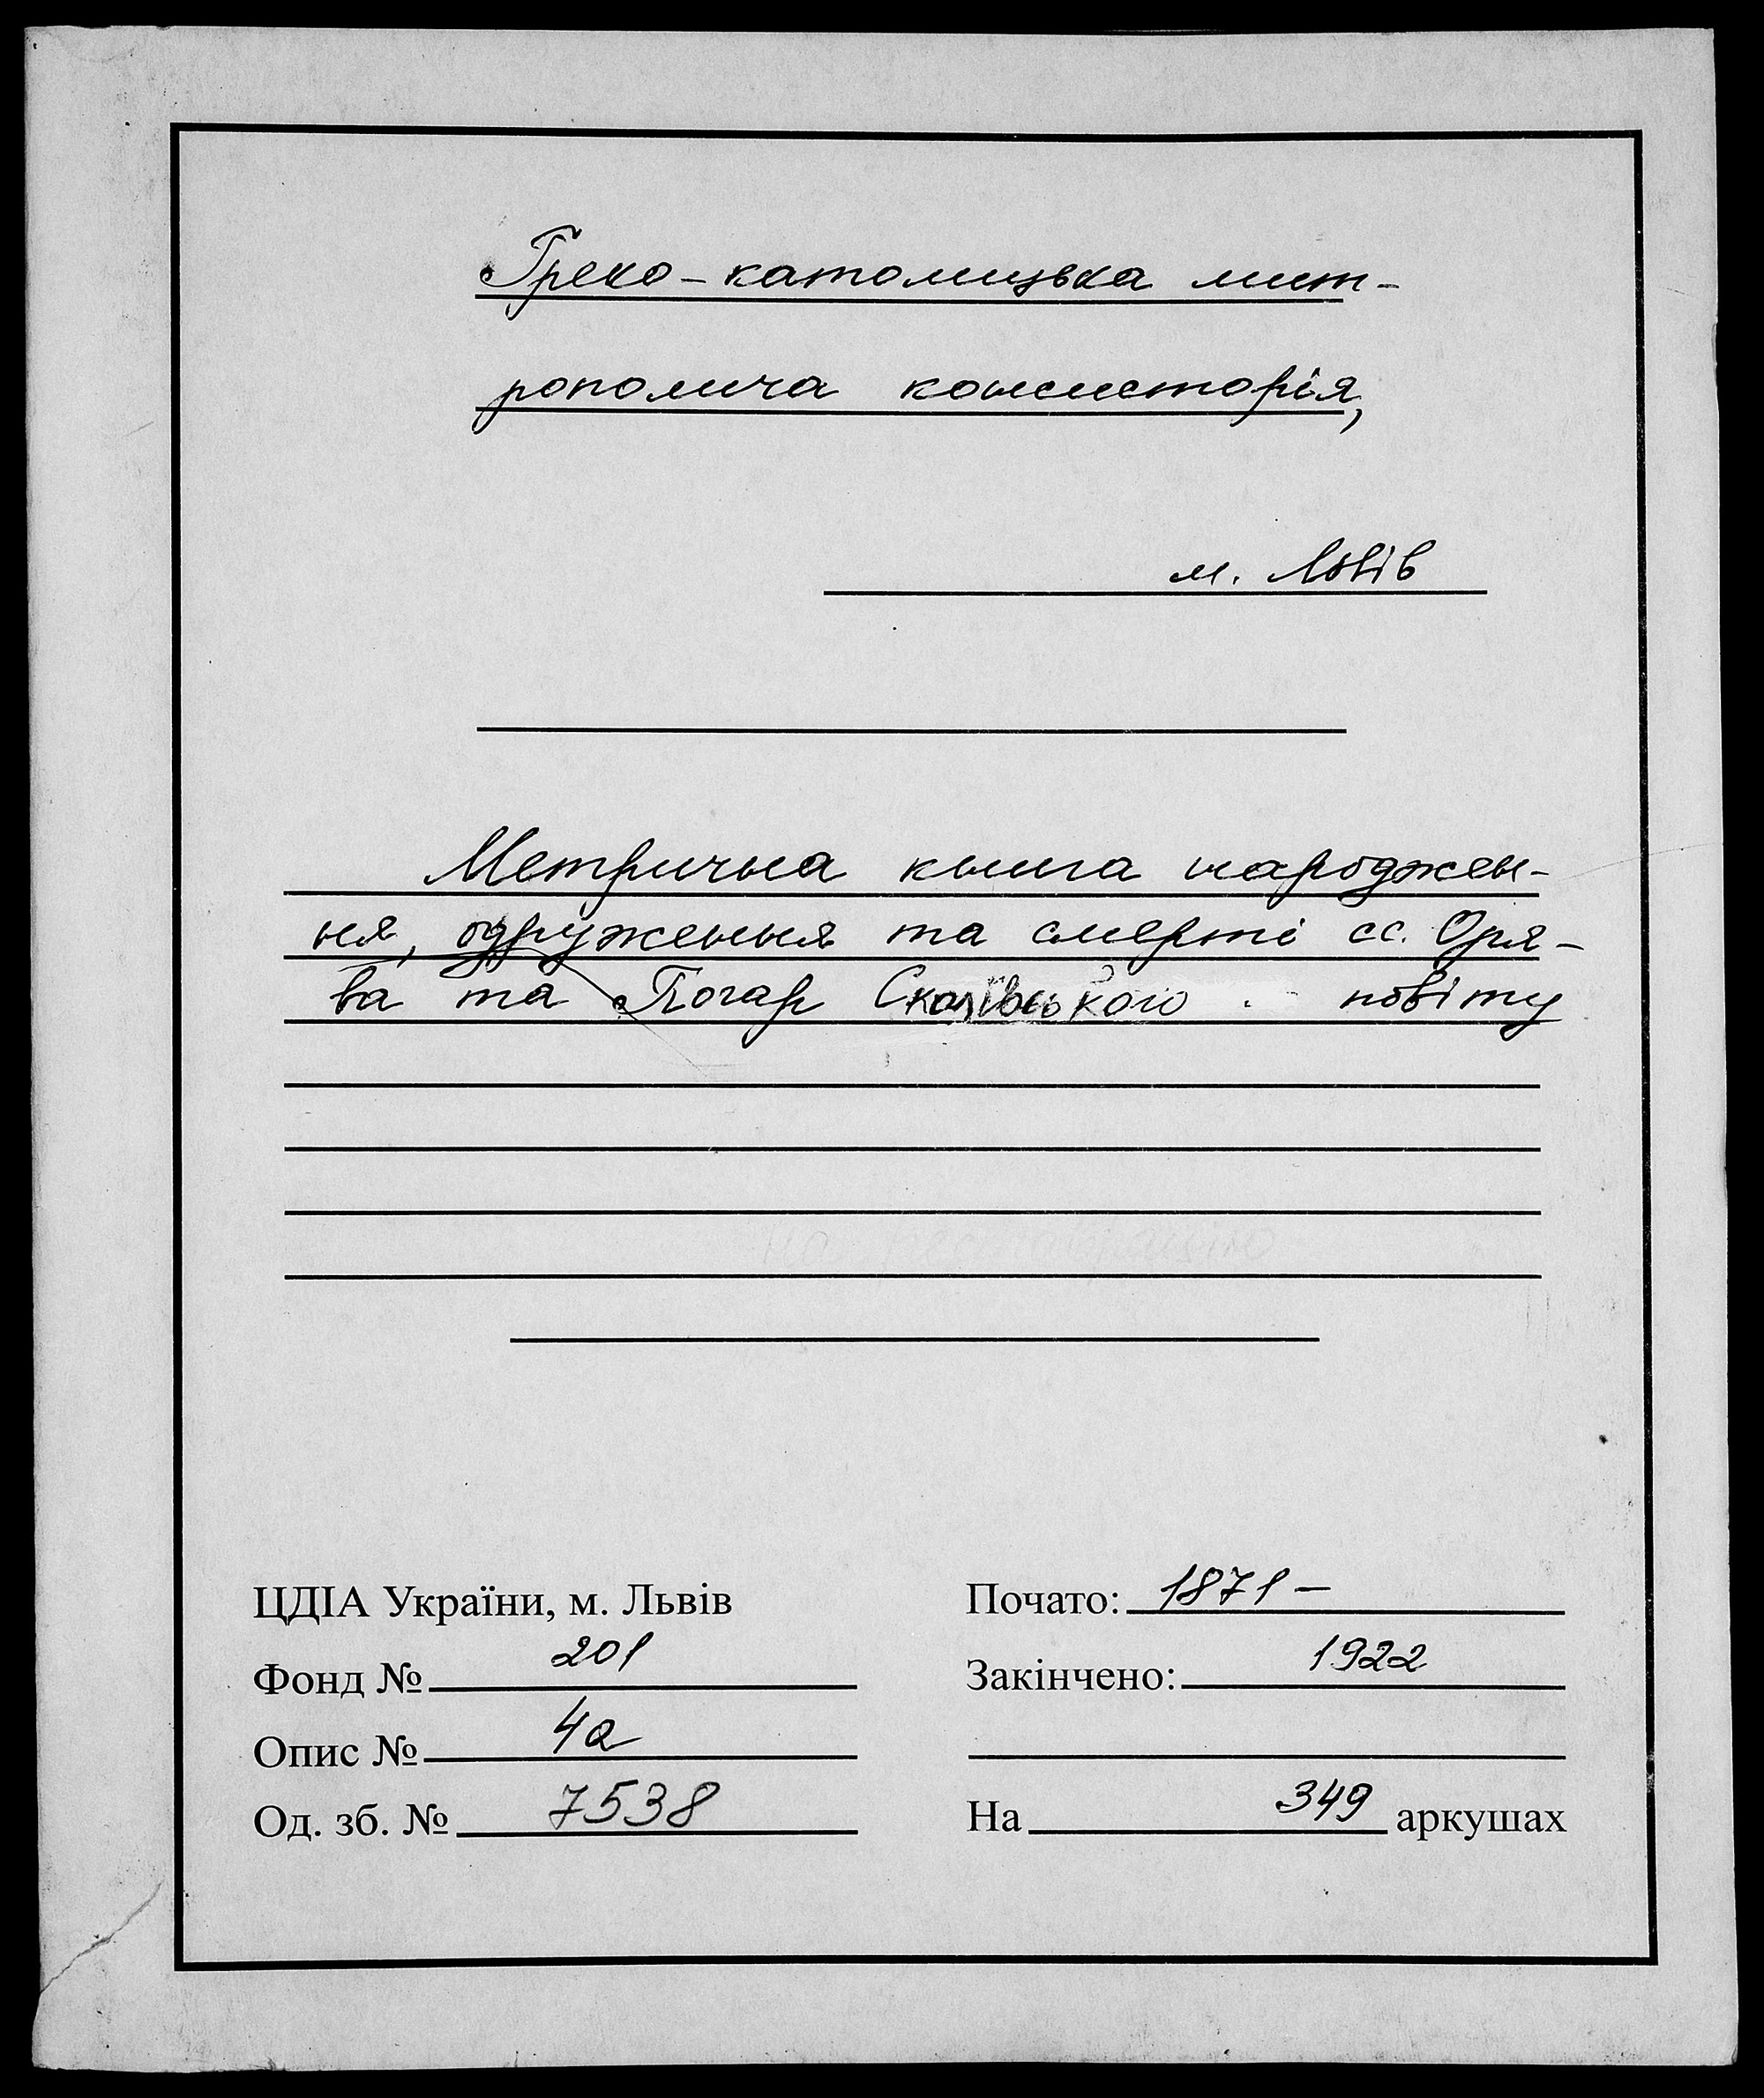 Греко-католицька мит-
рополича консисторія,
м. Львів
Метрична книга народжен-
ня, одруження та смерті сс. Оря-
ва та Погар Сколівського повіту
на реставрацію
ЦДІА України, м. Львів
Фонд № 201
Опис № 4а
Од. зб. № 7538
Почато: 1871 –
Закінчено: 1922
На 349 аркушах